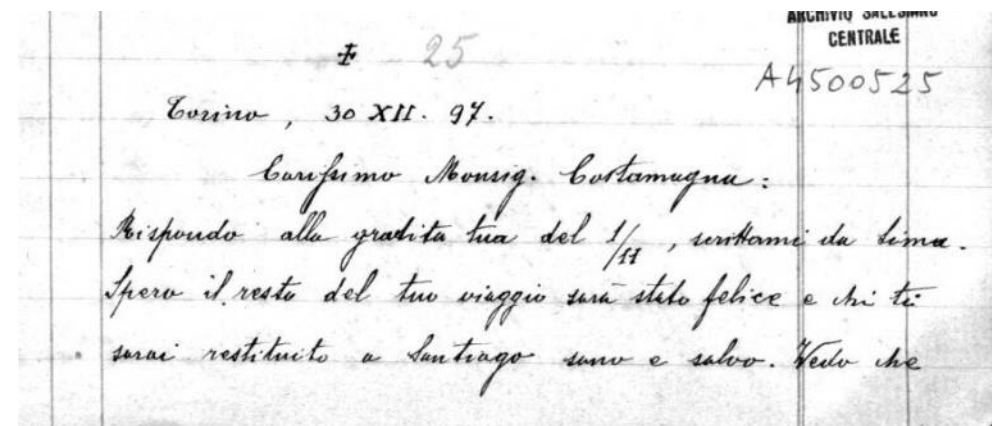 ARCHIVIO SALESIANO
CENTRALE
25
A4500525
Torino, 30 XII. 97.
Carissimo Monsig. Costamagna:
Rispondo alla gradita tua del 1/11, scrittami da Lima.
Spero il resto del tuo viaggio sarà stato felice e chi ti
sarai restituito a Santiago sano e salvo. Vedo che